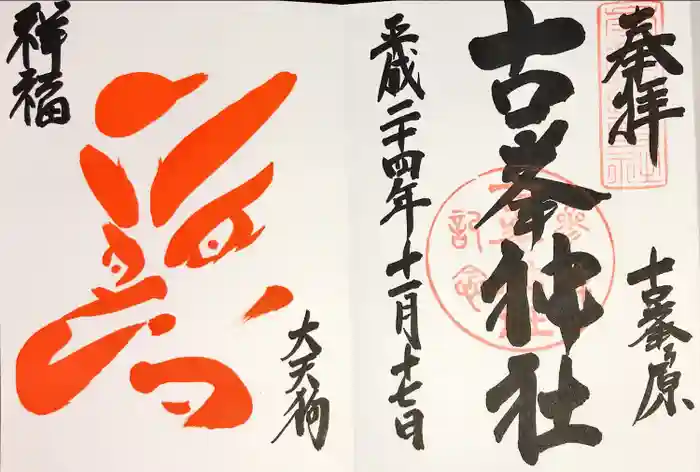 奉拝
古峯原
古峯神社
平成二十四年十一月十七日
大天狗
祥福